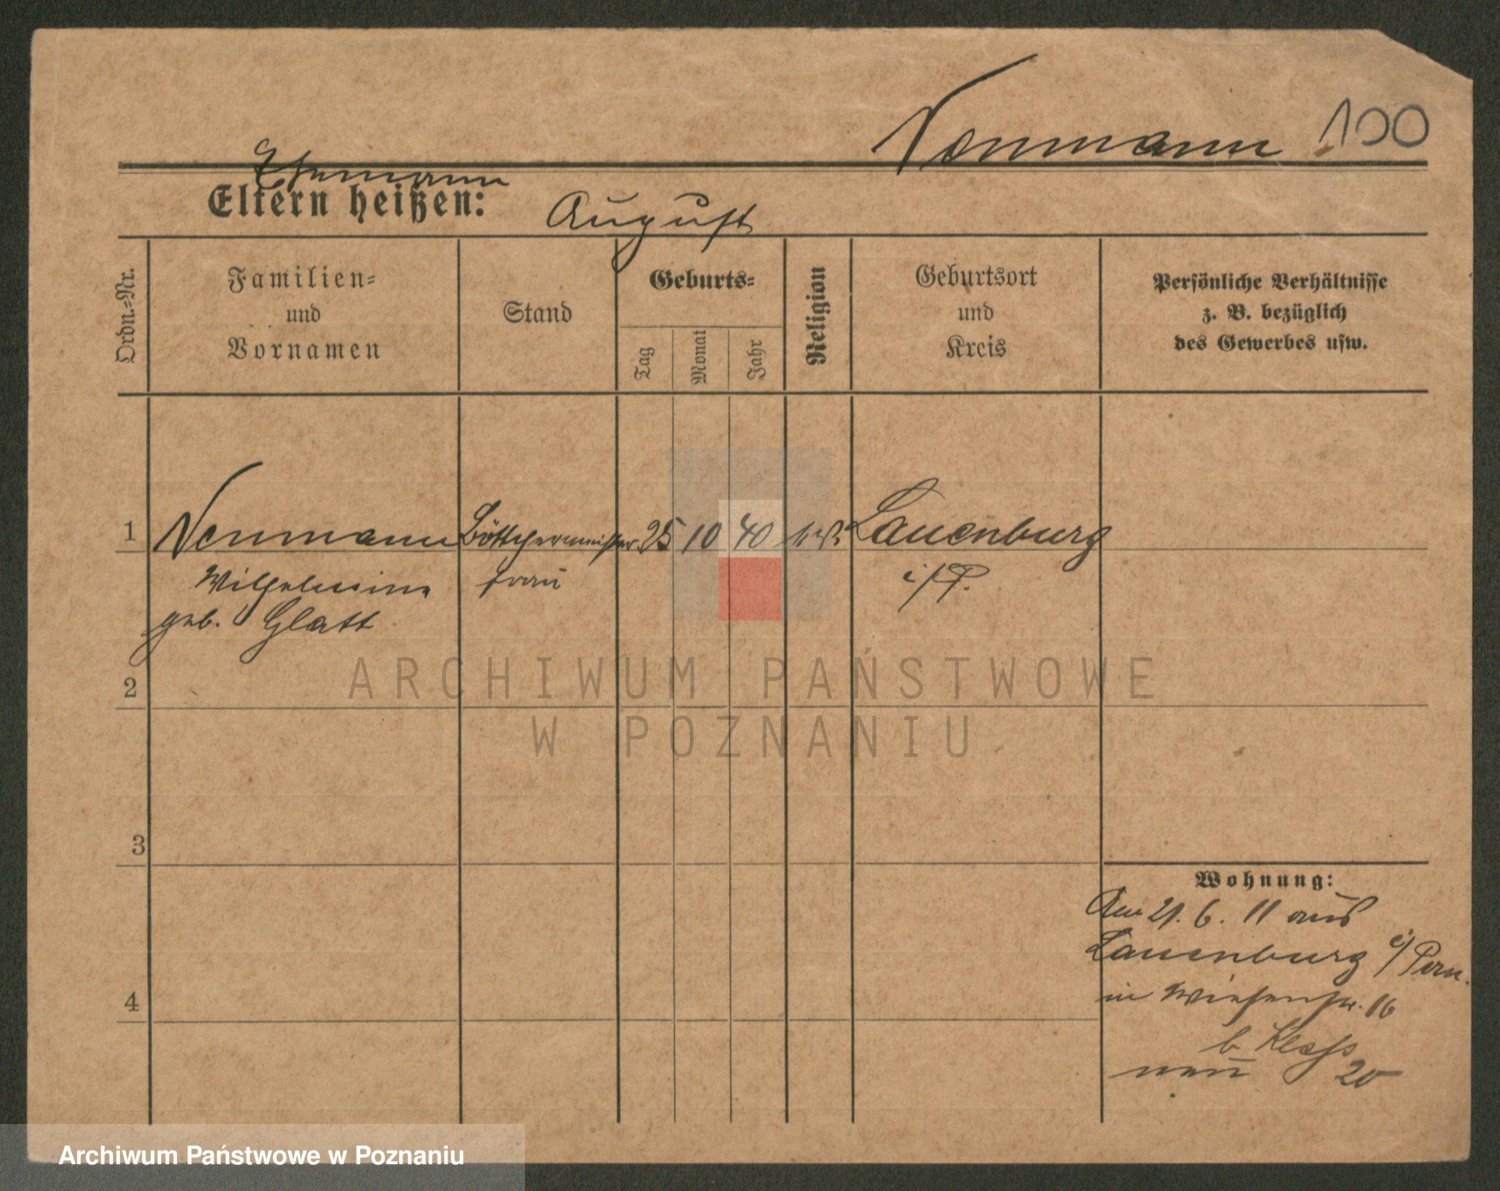 Neumann 100
Ehemann
Eltern heißen: August
Ordn.-Nr.
Familien- und Vornamen
Stand
Geburts-
Tag
Monat
Jahr
Religion
Geburtsort und Kreis
Persönliche Verhältnisse z. B. bezüglich des Gewerbes usw.
1 Neumann Böttchermeister 25 10 40 Lauenburg
Wilhelmine frau i/P.
geb. Glatt
2
3
4
Wohnung:
Am 21. 6. 11 aus
Lauenburg i/Pom.
in Wiesenstr. 16
b.
neu 20
ARCHIWUM PAŃSTWOWE
W POZNANIU
Archiwum Państwowe w Poznaniu